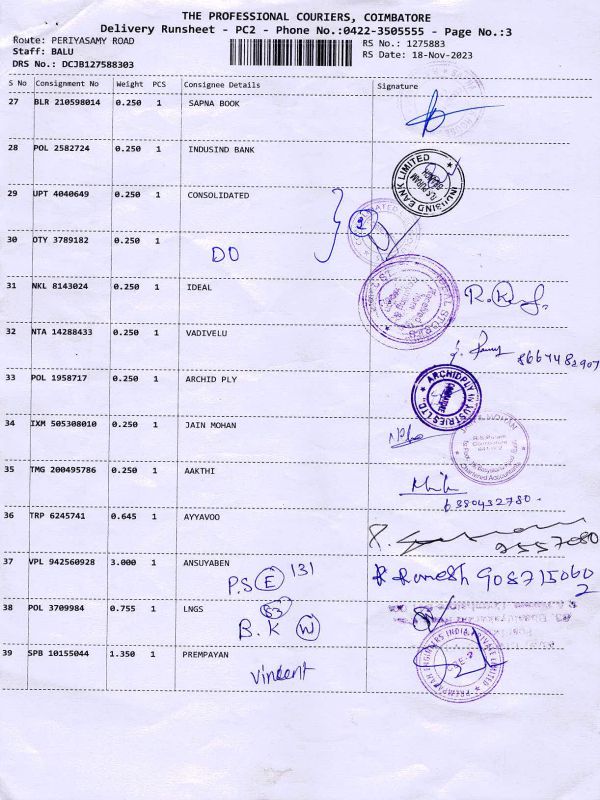 THE PROFESSIONAL COURIERS, COIMBATORE
Delivery Runsheet - PC2 - Phone No.:0422-3505555 - Page No.:3
Route: PERIYASAMY ROAD
Staff: BALU
DRS No.: DCJB127588303
RS No.: 1275883
RS Date: 18-Nov-2023
S No Consignment No Weight PCS Consignee Details Signature
27 BLR 210598014 0.250 1 SAPNA BOOK
28 POL 2582724 0.250 1 INDUSIND BANK
INDUSIND BANK LIMITED R.S.PURAM BRANCH
29 UPT 4040649 0.250 1 CONSOLIDATED
2
30 OTY 3789182 0.250 1
DO
31 NKL 8143024 0.250 1 IDEAL
32 NTA 14288433 0.250 1 VADIVELU
8667482907
33 POL 1958717 0.250 1 ARCHID PLY
ARCHIDPLY INDUSTRIES LTD.
34 IXM 505308010 0.250 1 JAIN MOHAN
Chartered Accountants
35 TMG 200495786 0.250 1 AAKTHI
6380432780
36 TRP 6245741 0.645 1 AYYAVOO
37 VPL 942560928 3.000 1 ANSUYABEN
P.S E 131
Ramesh 9087150602
38 POL 3709984 0.755 1 LNGS
83
B.K W
39 SPB 10155044 1.350 1 PREMPAYAN
Vincent
PREMPARAH ENGINEERS INDIA PRIVATE LIMITED